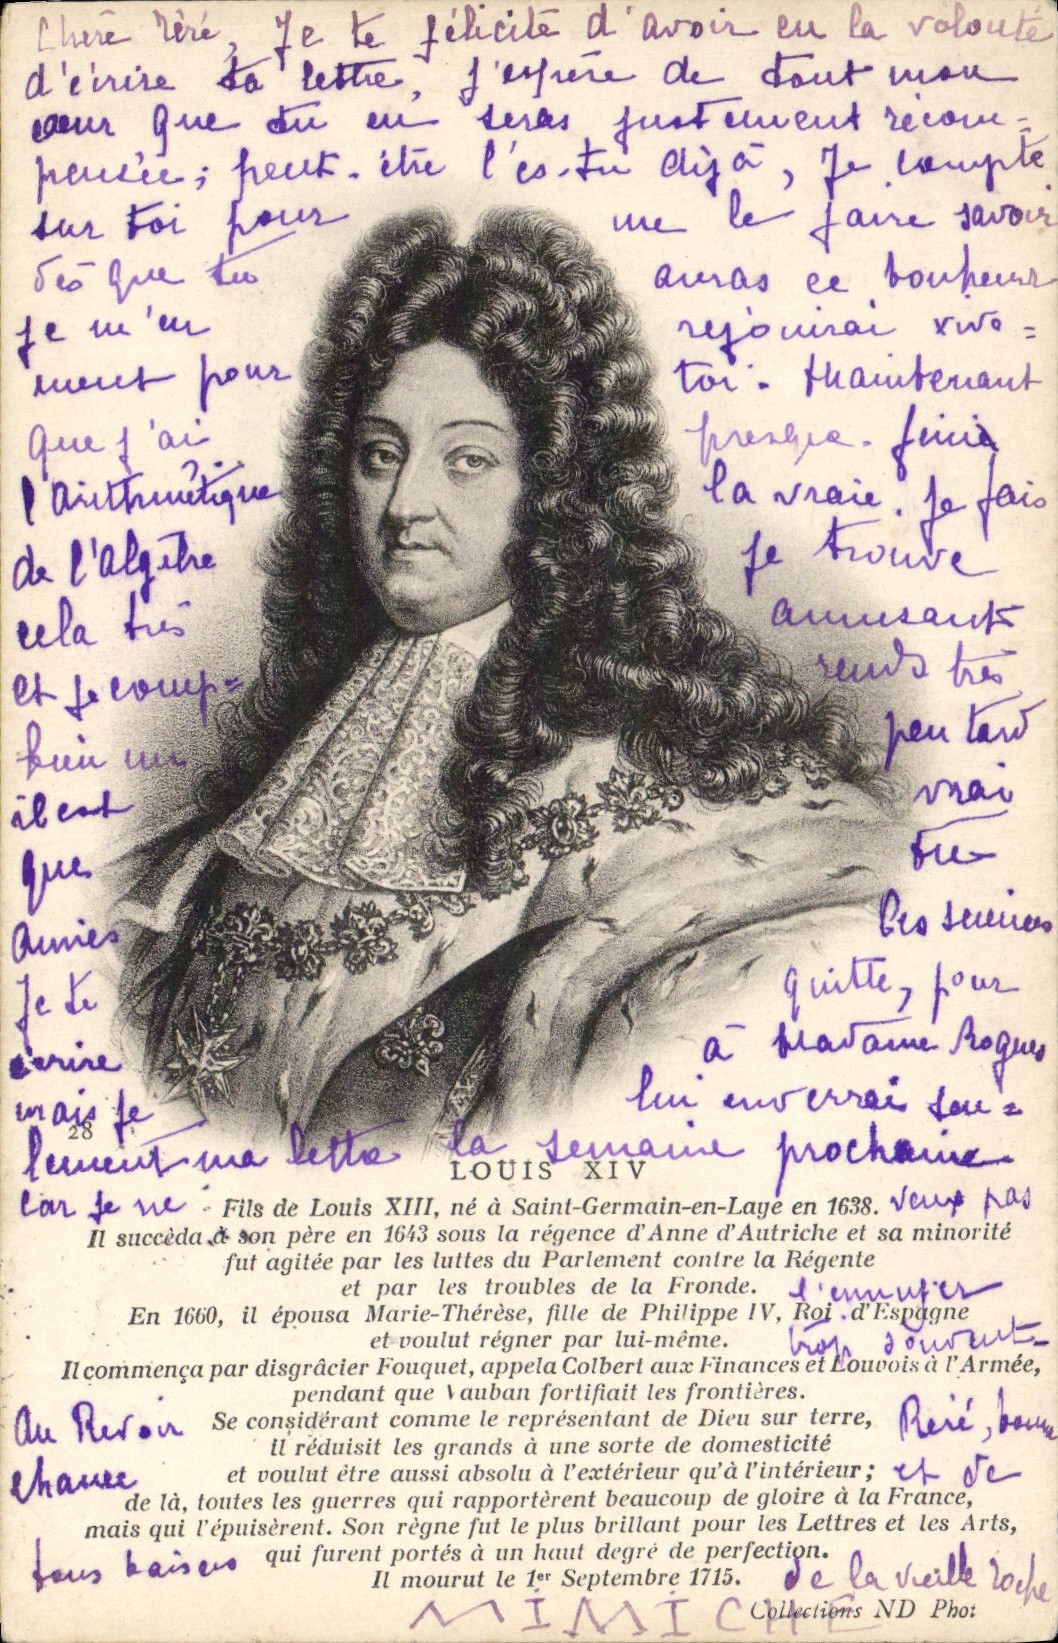 Chère Réré, Je te félicite d'avoir eu la volonté
d'écrire ta lettre, j'espère de tout mon
cœur que tu en seras justement récom=
pensée; peut-être l'es-tu déjà, Je compte
sur toi pour me le faire savoir
dès que tu auras ce bonheur
je m'en réjouirai vive=
ment pour toi. Maintenant
que j'ai presque fini
l'arithmétique la vraie, je fais
de l'algèbre je trouve
cela très amusant
et je comp= rends très
bien un peu tard
il est vrai
que tu
aimes les sciences
Je te quitte, pour
écrire à Madame Rogues
mais je lui enverrai seu=
lement ma lettre la semaine prochaine
car je ne veux pas
l'ennuyer
trop souvent.
Au Revoir Réré, bonne
chance et de
bons baisers de la vieille roche
MIMICHE
28
LOUIS XIV
Fils de Louis XIII, né à Saint-Germain-en-Laye en 1638.
Il succèda à son père en 1643 sous la régence d'Anne d'Autriche et sa minorité
fut agitée par les luttes du Parlement contre la Régente
et par les troubles de la Fronde.
En 1660, il épousa Marie-Thérèse, fille de Philippe IV, Roi d'Espagne
et voulut régner par lui-même.
Il commença par disgrâcier Fouquet, appela Colbert aux Finances et Louvois à l'Armée,
pendant que Vauban fortifiait les frontières.
Se considérant comme le représentant de Dieu sur terre,
il réduisit les grands à une sorte de domesticité
et voulut être aussi absolu à l'extérieur qu'à l'intérieur;
de là, toutes les guerres qui rapportèrent beaucoup de gloire à la France,
mais qui l'épuisèrent. Son règne fut le plus brillant pour les Lettres et les Arts,
qui furent portés à un haut degré de perfection.
Il mourut le 1er Septembre 1715.
Collections ND Phot